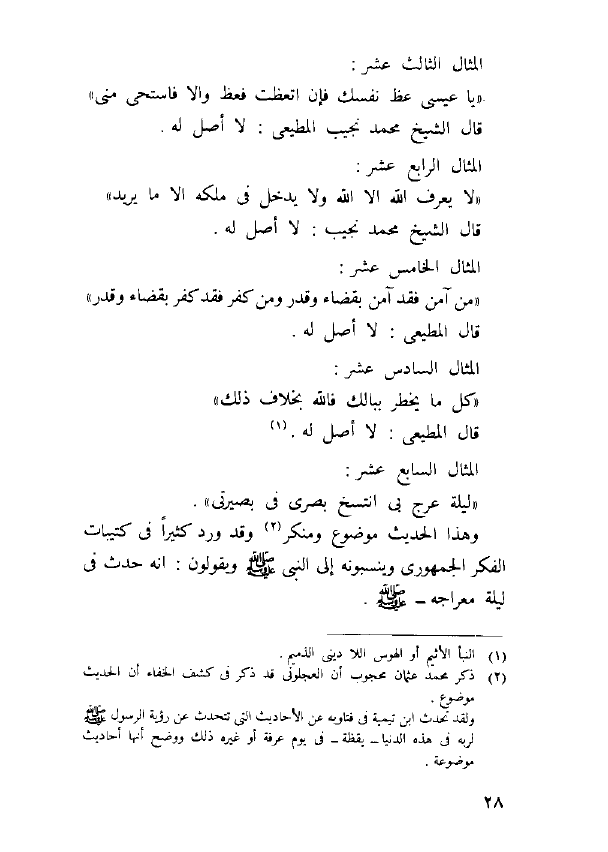 المثال الثالث عشر :
«يا عيسى عظ نفسك فإن اتعظت فعظ والا فاستحى منى»
قال الشيخ محمد نجيب المطيعى : لا أصل له .
المثال الرابع عشر :
«لا يعرف الله الا الله ولا يدخل فى ملكه الا ما يريد»
قال الشيخ محمد نجيب : لا أصل له .
المثال الخامس عشر :
«من آمن فقد آمن بقضاء وقدر ومن كفر فقد كفر بقضاء وقدر»
قال المطيعى : لا أصل له .
المثال السادس عشر :
«كل ما يخطر ببالك فالله بخلاف ذلك»
قال المطيعى : لا أصل له . (١)
المثال السابع عشر :
«ليلة عرج بى انتسخ بصرى فى بصيرتى» .
وهذا الحديث موضوع ومنكر (٢) وقد ورد كثيراً فى كتيبات
الفكر الجمهورى وينسبونه إلى النبى ﷺ ويقولون : انه حدث فى
ليلة معراجه ــ ﷺ .
(١) النبأ الأثيم أو الهوس اللا دينى الذميم .
(٢) ذكر محمد عثمان محجوب أن العجلونى قد ذكر فى كشف الخفاء أن الحديث
موضوع .
ولقد تحدث ابن تيمية فى فتاويه عن الأحاديث التى تتحدث عن رؤية الرسول ﷺ
لربه فى هذه الدنيا ــ يقظة ــ فى يوم عرفة أو غيره ذلك ووضح أنها أحاديث
موضوعة .
٢٨